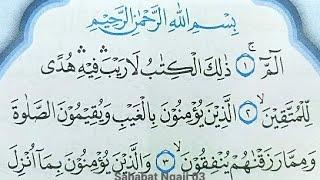 بِسْمِ اللّٰهِ الرَّحْمٰنِ الرَّحِيْمِ
الٓمّٓ ۚ ۝١ ذٰلِكَ الْكِتٰبُ لَا رَيْبَ ۛ فِيْهِ ۛ هُدًى
لِّلْمُتَّقِيْنَ ۙ ۝٢ الَّذِيْنَ يُؤْمِنُوْنَ بِالْغَيْبِ وَيُقِيْمُوْنَ الصَّلٰوةَ
وَمِمَّا رَزَقْنٰهُمْ يُنْفِقُوْنَ ۙ ۝٣ وَالَّذِيْنَ يُؤْمِنُوْنَ بِمَآ اُنْزِلَ
Sahabat Ngaji 03